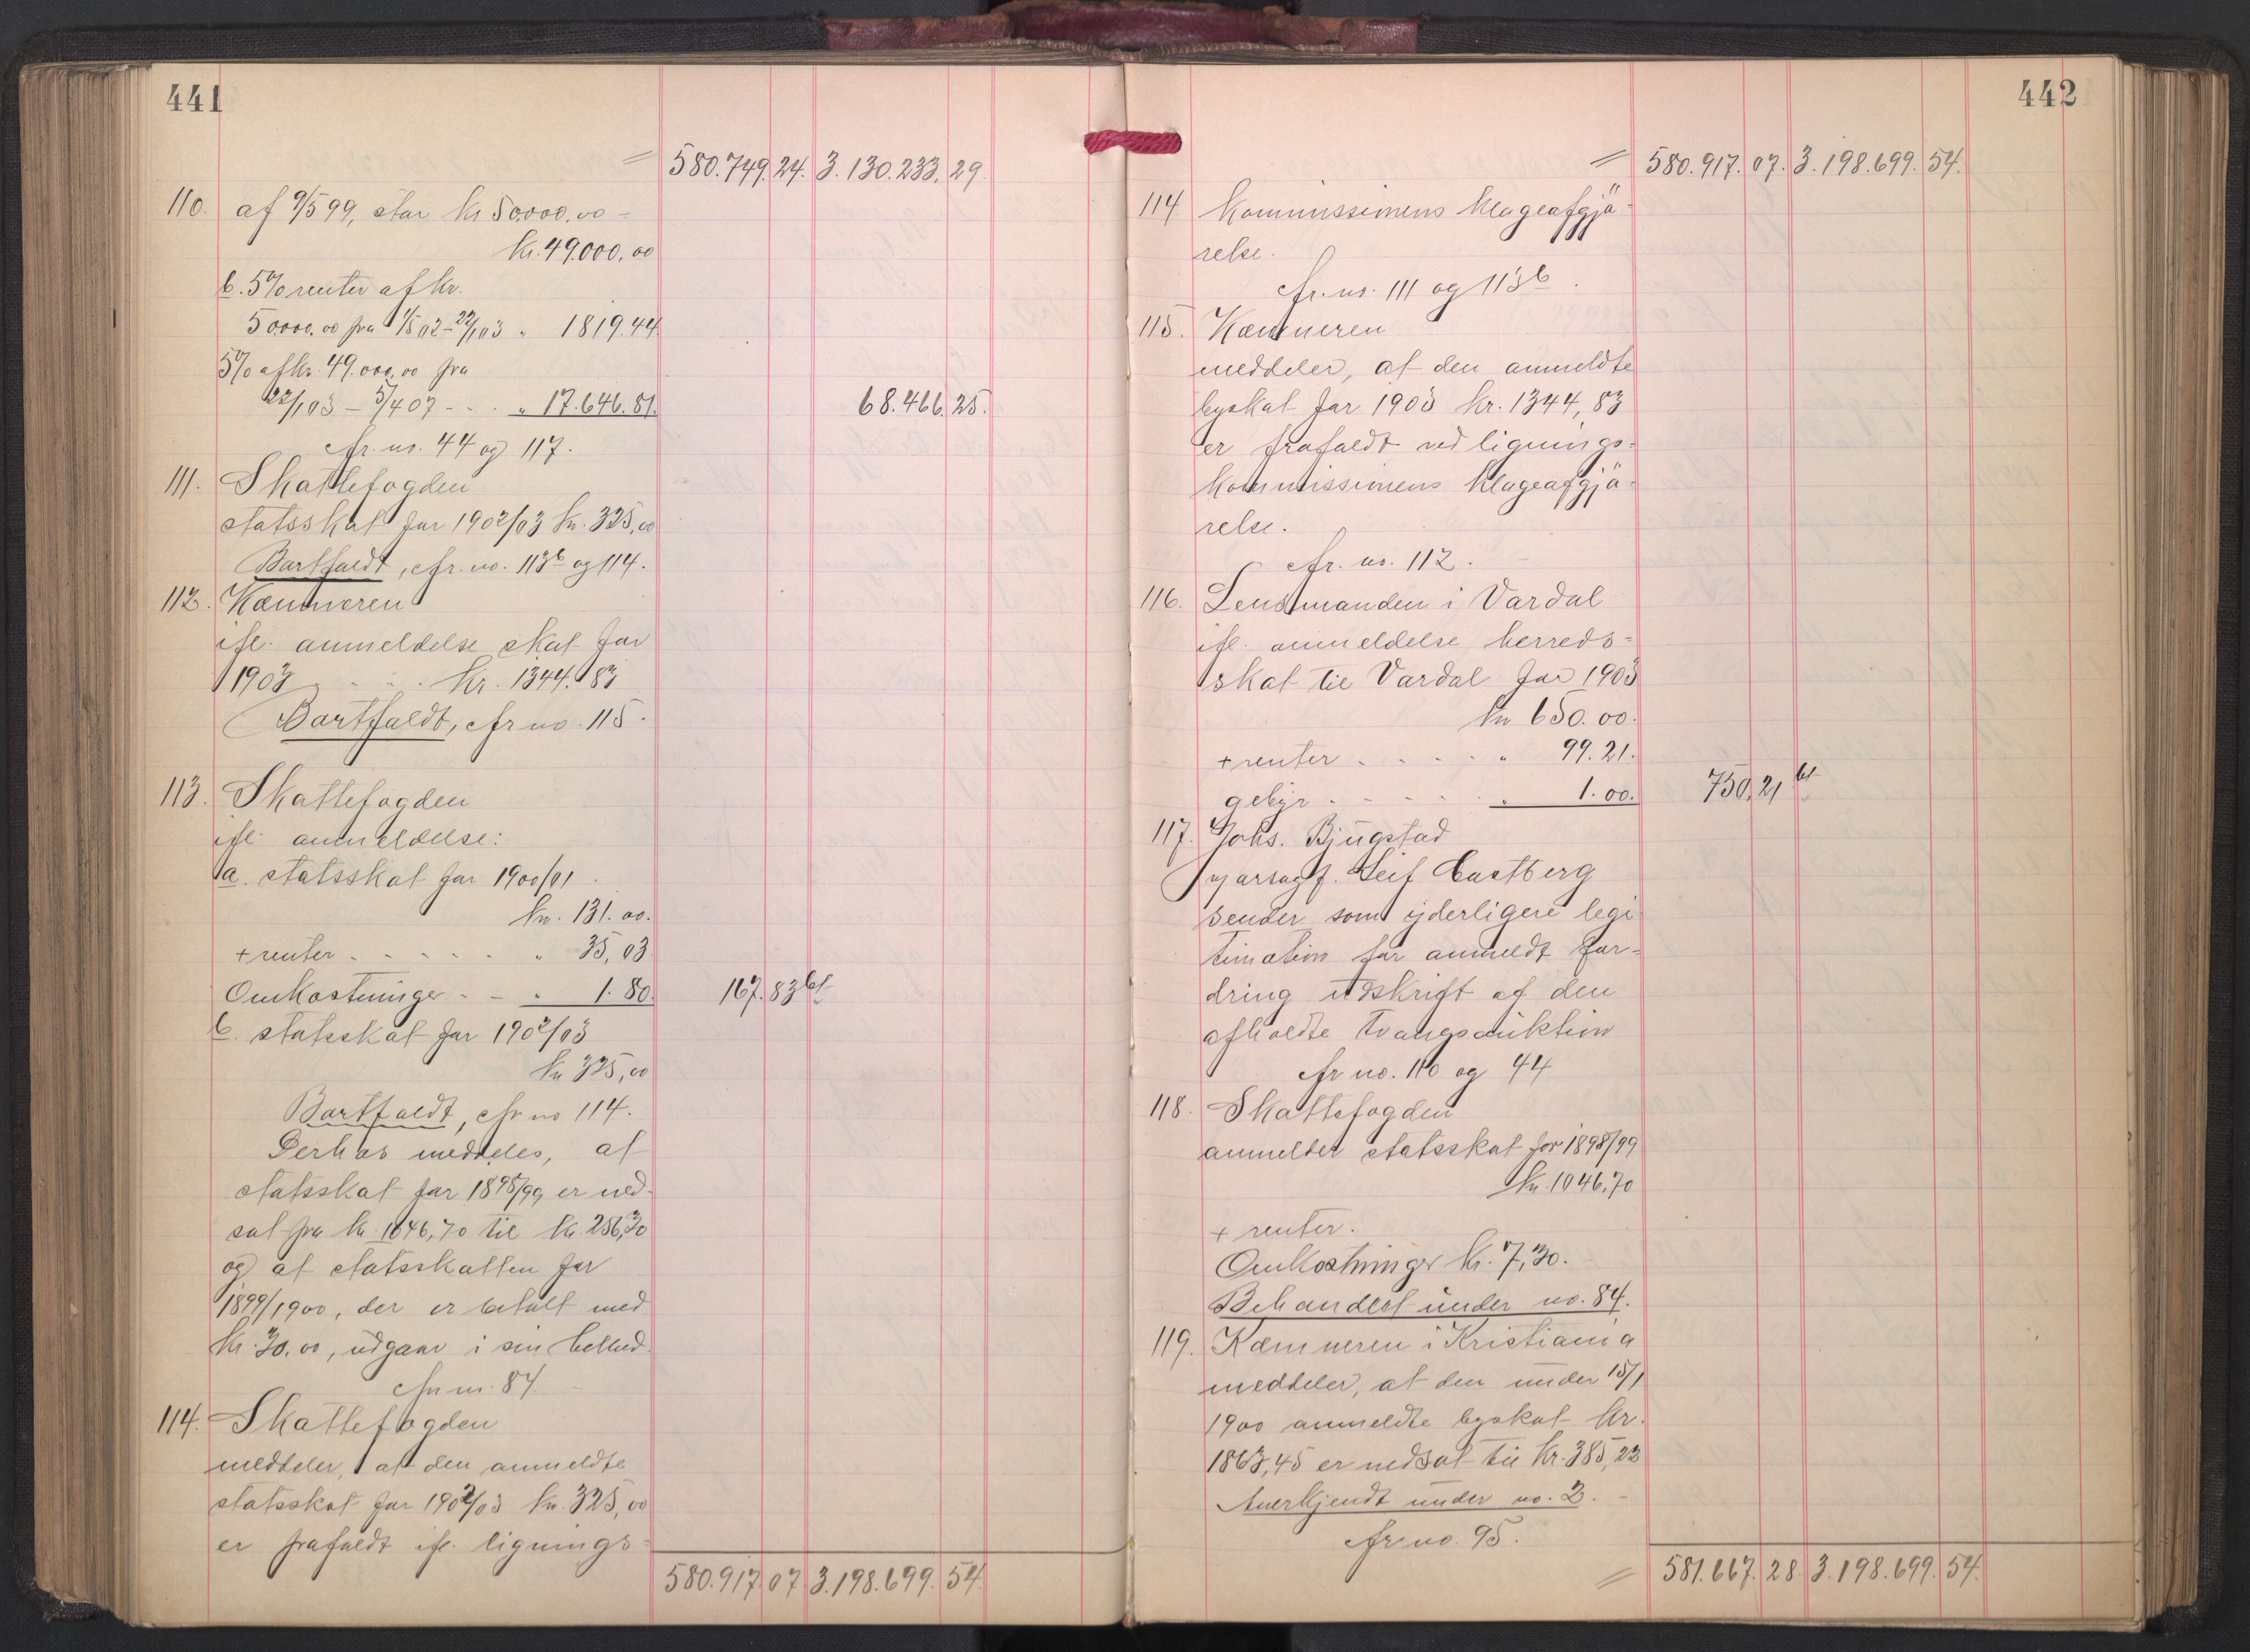 441
= 580.749.24. 3.130.233.29.
110. af 9/5 99, stor kr 50.000.00 -
kr. 49.000,00
b. 5% renter af kr.
50000.00 fra 1/5 02 - 22/1 03 „ 1819.44
5% af kr. 49.000,00 fra
22/1 03 - 5/4 07 - . . „ 17.646.81. 68.466.25.
cfr. no. 44 og 117.
111. Skattefogden
statsskat for 1902/03 kr. 325,00
Bortfaldt, cfr. no. 113b og 114.
112. Kæmneren
ifl. anmeldelse skat for
1903 . . . kr. 1344.83
Bortfaldt, cfr no. 115.
113. Skattefogden
ifl. anmeldelse:
a. statsskat for 1900/01
kr. 131.00.
+ renter . . . . . „ 35,03
Omkostninger - - „ 1.80. 167.83 bf
b. statsskat for 1902/03
kr 325,00
Bortfaldt, cfr no 114.
Derhos meddeles, at
statsskat for 1898/99 er ned-
sat fra kr. 1046,70 til kr. 256,30
og at statsskatten for
1899/1900, der er betalt med
kr. 30.00, udgaar i sin helhed.
cfr no. 84.
114. Skattefogden
meddeler, at den anmeldte
statsskat for 1902/03 kr. 325,00
er frafaldt ifl. lignings-
580.917.07 3.198.699.54.
442
= 580.917.07. 3.198.699.54.
114 kommissionens klageafgjö-
relse.
cfr. no. 111 og 113b.
115. Kæmneren
meddeler, at den anmeldte
byskat for 1903 kr. 1344,83
er frafaldt ved lignings-
kommissionens klageafgjö-
relse.
cfr. no. 112.
116. Lensmanden i Vardal
ifl. anmeldelse herreds-
skat til Vardal for 1903
kr 650.00.
+ renter . . . . . „ 99.21.
gebyr . . . . . „ 1.00. 750.21 bf
117. Johs. Bjugstad
Leif Castberg
sender som yderligere legi-
timation for anmeldt for-
dring udskrift af den
afholdte tvangsauktion
cfr no. 110 og 44
118. Skattefogden
anmelder statsskat for 1898/99
kr. 1046,70
+ renter.
Omkostninger kr. 7,30.
Behandlet under no. 84.
119. Kæmneren i Kristiania
meddeler, at den under 15/1
1900 anmeldte byskat kr.
1863,45 er nedsat til kr. 385,22
Anerkjendt under no. 2.
cfr no. 95.
= 581.667.28. 3.198.699.54.